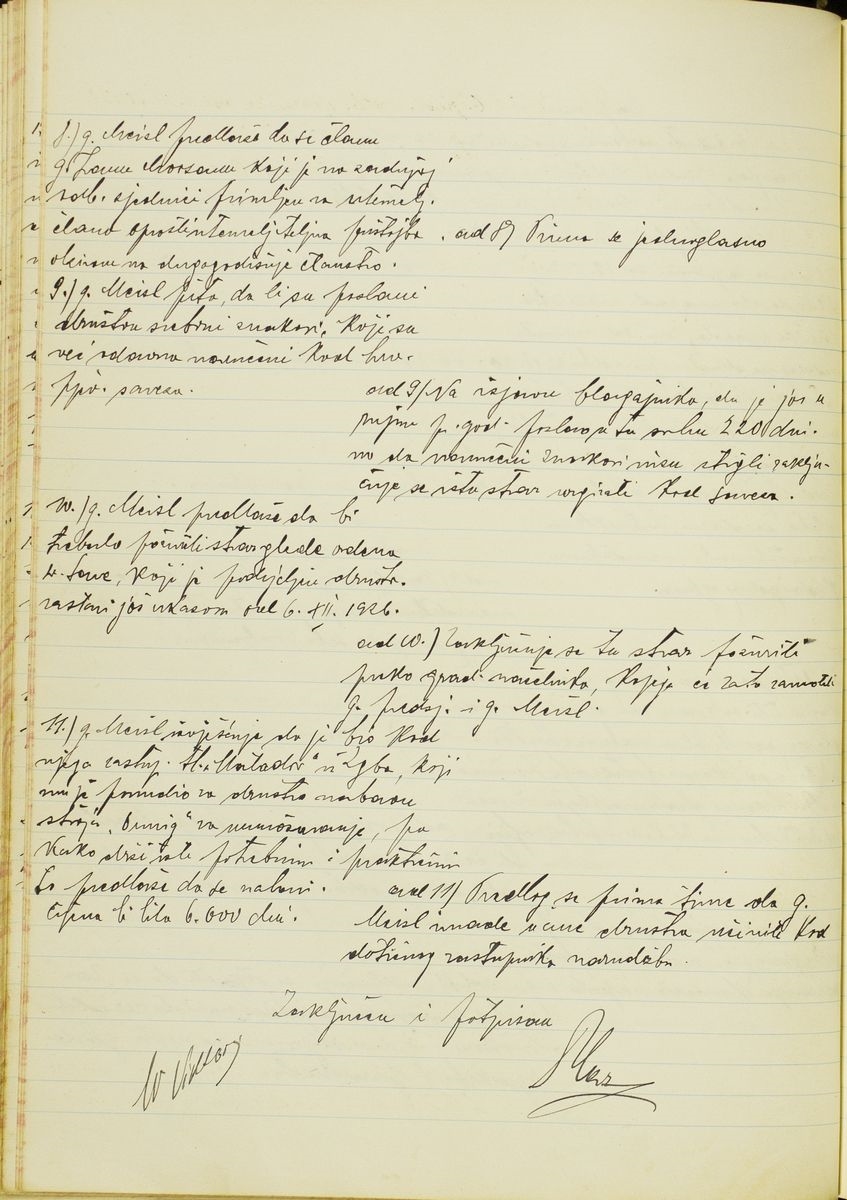 8.) g. Meisl predlaže da se članu
g. koji je na zadnjoj
odb. sjednici primljen za utemelj.
člana oprosti utemeljiteljna pristojba. ad 8) Prima se jednoglasno
obzirom na dugogodišnje članstvo.
9.) g. Meisl pita, da li su poslani
društvu srebrni znakovi, koji su
već odavna naručeni kod hrv.
pjev. saveza.
ad 9) Na izjavu blagajnika, da je još u
p. god. poslao u tu svrhu 220 din.
no da naručeni znakovi nisu stigli zaklju-
čuje se istu stvar urgirati kod Saveza.
10.) g. Meisl predlaže da bi
trebalo požuriti stvar glede ordena
sv. Save, koji je podijeljen društv.
zastavi još ukazom od 6. XII. 1926.
ad 10.) Zaključuje se tu stvar požuriti
preko grad. načelnika, kojega će zato zamoliti
g. predsj. i g. Meisl.
11.) g. Meisl izvješćuje da je bio kod
njega zastup. "Matador" iz Zgba, koji
mu je ponudio za društvo nabavu
stroja za umnožavanje, pa
kako drži isti potrebnim i praktičnim
to predlaže da se nabavi.
Cijena bi bila 6.000 din.
ad 11) Predlog se prima time da g.
Meisl imade u ime društva učiniti kod
dotičnog zastupnika narudžbu.
Zaključeno i potpisano